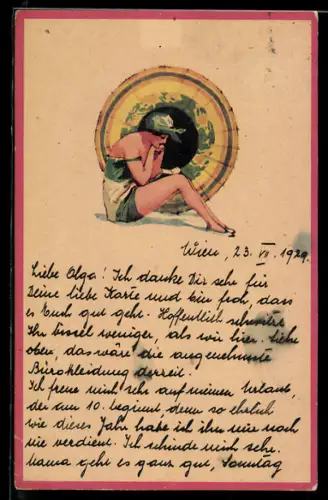 Wien, 23. VII. 1929.
Liebe Olga! Ich danke Dir sehr für
Deine liebe Karte und bin froh, dass
es Euch gut geht. Hoffentlich schwitzt
Ihr bissel weniger, als wir hier. Siehe
oben, das wäre die angenehmste
Bürokleidung derzeit.
Ich freue mich sehr auf meinen Urlaub,
der am 10. beginnt, denn so ehrlich
wie dieses Jahr habe ich ihn nur noch
nie verdient. Ich schinde mich sehr.
Mama geht es ganz gut, Sonntag